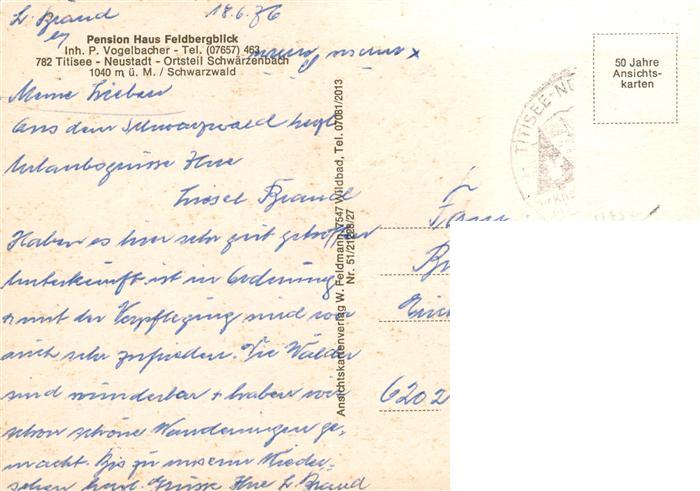 L. Brand 18.6.76
Pension Haus Feldbergblick
Inh. P. Vogelbacher - Tel. (07657) 463
782 Titisee - Neustadt - Ortsteil Schwärzenbach
1040 m ü. M. / Schwarzwald
Meine Lieben
Aus dem Schwarzwald liegl
Urlaubsgrüsse Ihre
Liesel Brand
Haben es hier sehr gut getroffen
Unterkunft ist in Ordnung
+ mit der Verpflegung sind wir
auch sehr zufrieden. Die Wälder
sind wunderbar + haben wir
schon schöne Wanderungen ge-
macht. Bis zu unserm Wieder-
sehen herzl. Grüsse Ihre L. Brand
Ansichtskartenverlag W. Feldmann, 7547 Wildbad, Tel. 07081/2013
Nr. 51/21228/27
50 Jahre
Ansichts-
karten
TITISEE-NE
6202